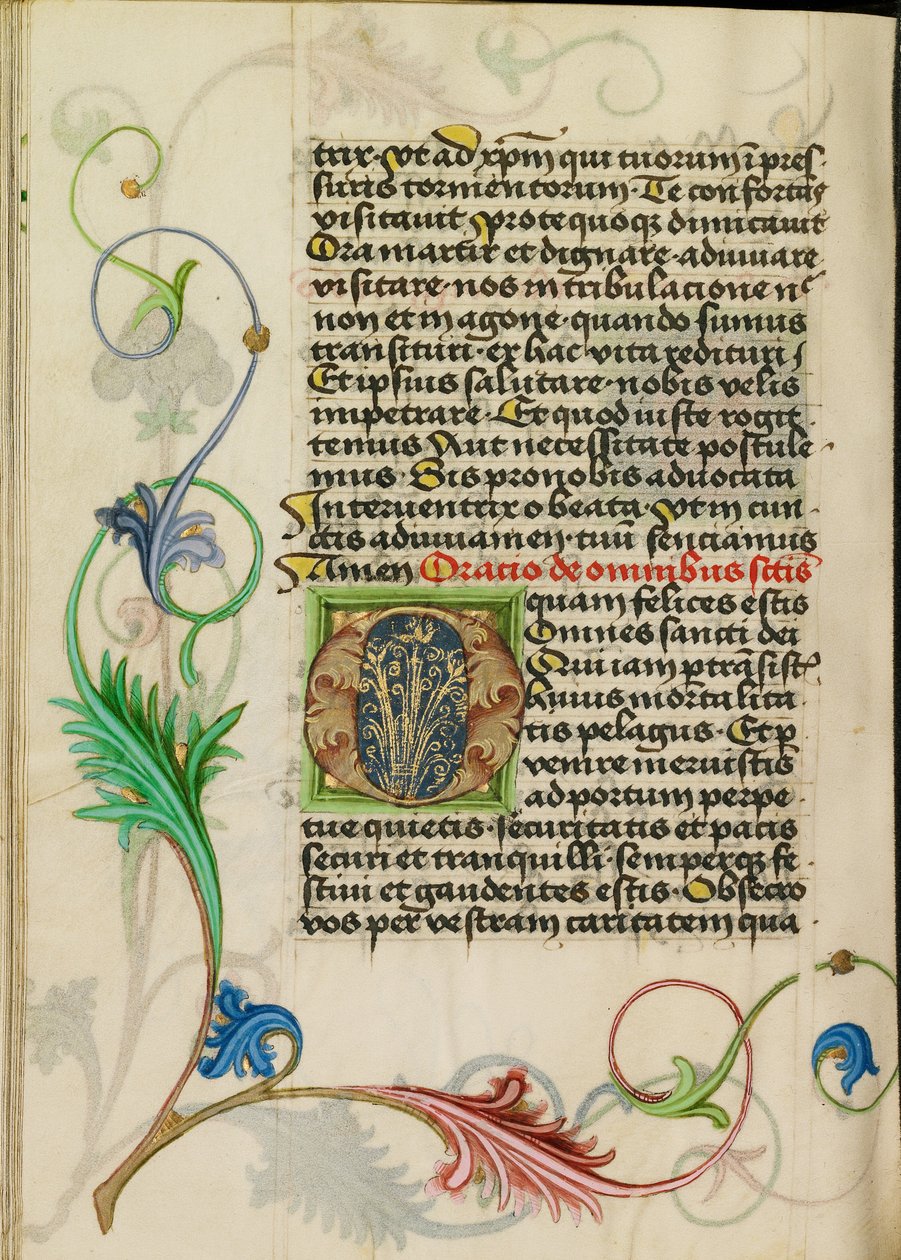 trix· vt ad xp̄m qui tuorum ī pres-
suris tormentorum· Te confortās
visitauit pro te quoqꝫ dimicauit
Ora martir et dignare· adiuuare
visitare· nos in tribulacione nͨ
non et in agone· quando sumus
transituri· ex hac vita redituri/
Et ipsius salutare· nobis velis
impetrare· Et quod iuste rogit
temus Aut necessitate postule-
mus· Sis pro nobis aduocata
Interuentrix o beata· vt in cun
ctis adiuuamen· tuū senciamus
Amen Oracio de omnibus sctīs
O quam felices estis
Omnes sancti dei
Qui iam ꝑtrāsist᷒
huius mortalita
tis pelagus· Et ꝑ
venire meruistis
ad portum perpe
tue quietis· securitatis et pacis
securi et tranquilli· semperqꝫ fe
stiui et gaudentes estis· Obsecro
vos per vestram caritatem qua